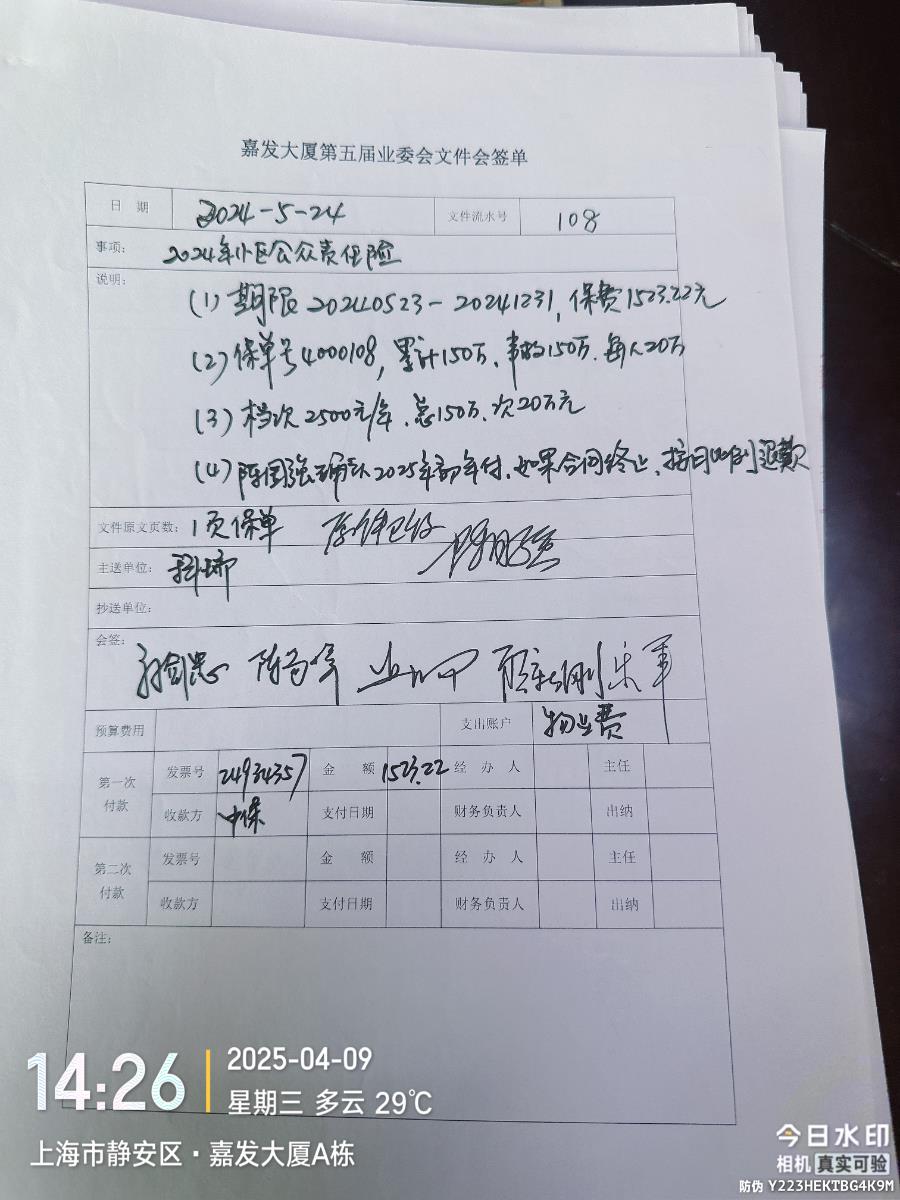 嘉发大厦第五届业委会文件会签单
日 期 2024-5-24 文件流水号 108
事项: 2024年小区公众责任险
说明:
(1) 期限 20240523-20241231, 保费1523.22元
(2) 保单号4000108, 累计150万、事故150万、每人20万
(3) 档次 2500元/年、总150万、次20万元
(4) 陈国强确认2025年初年付、如果合同终止、按日比例退款
文件原文页数: 1页保单
主送单位:
抄送单位:
会签:
预算费用 支出账户 物业费
第一次付款 发票号 24934357 金 额 1523.22 经 办 人 主任
收款方 中保 支付日期 财务负责人 出纳
第二次付款 发票号 金 额 经 办 人 主任
收款方 支付日期 财务负责人 出纳
备注:
14:26
2025-04-09
星期三 多云 29℃
上海市静安区·嘉发大厦A栋
今日水印
相机 真实可验
防伪 Y223HEKTBG4K9M